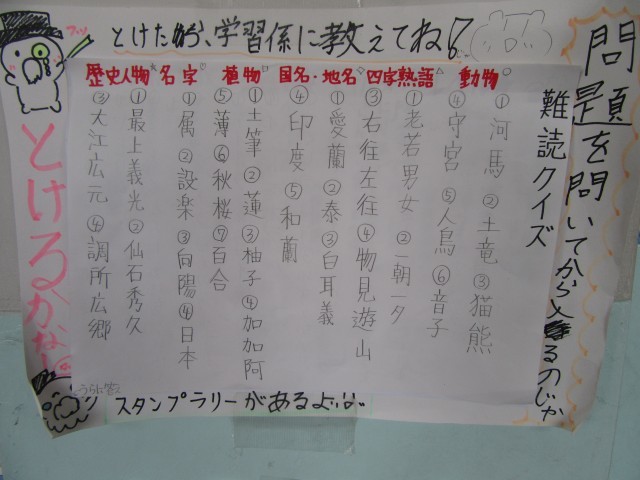 とけたら、学習係に教えてね!
問題を問いてから入るのじゃ
難読クイズ
動物
①河馬 ②土竜 ③猫熊
④守宮 ⑤人鳥 ⑥音子
四字熟語
①老若男女 ②一朝一夕
③右往左往 ④物見遊山
国名・地名
①愛蘭 ②泰 ③白耳義
④印度 ⑤和蘭
植物
①土筆 ②蓮 ③柚子 ④加加阿
⑤薄 ⑥秋桜 ⑦百合
名字
①属 ②設楽 ③向陽 ④日本
歴史人物
①最上義光 ②仙石秀久
③大江広元 ④調所広郷
とけるかな
スタンプラリーがあるよ